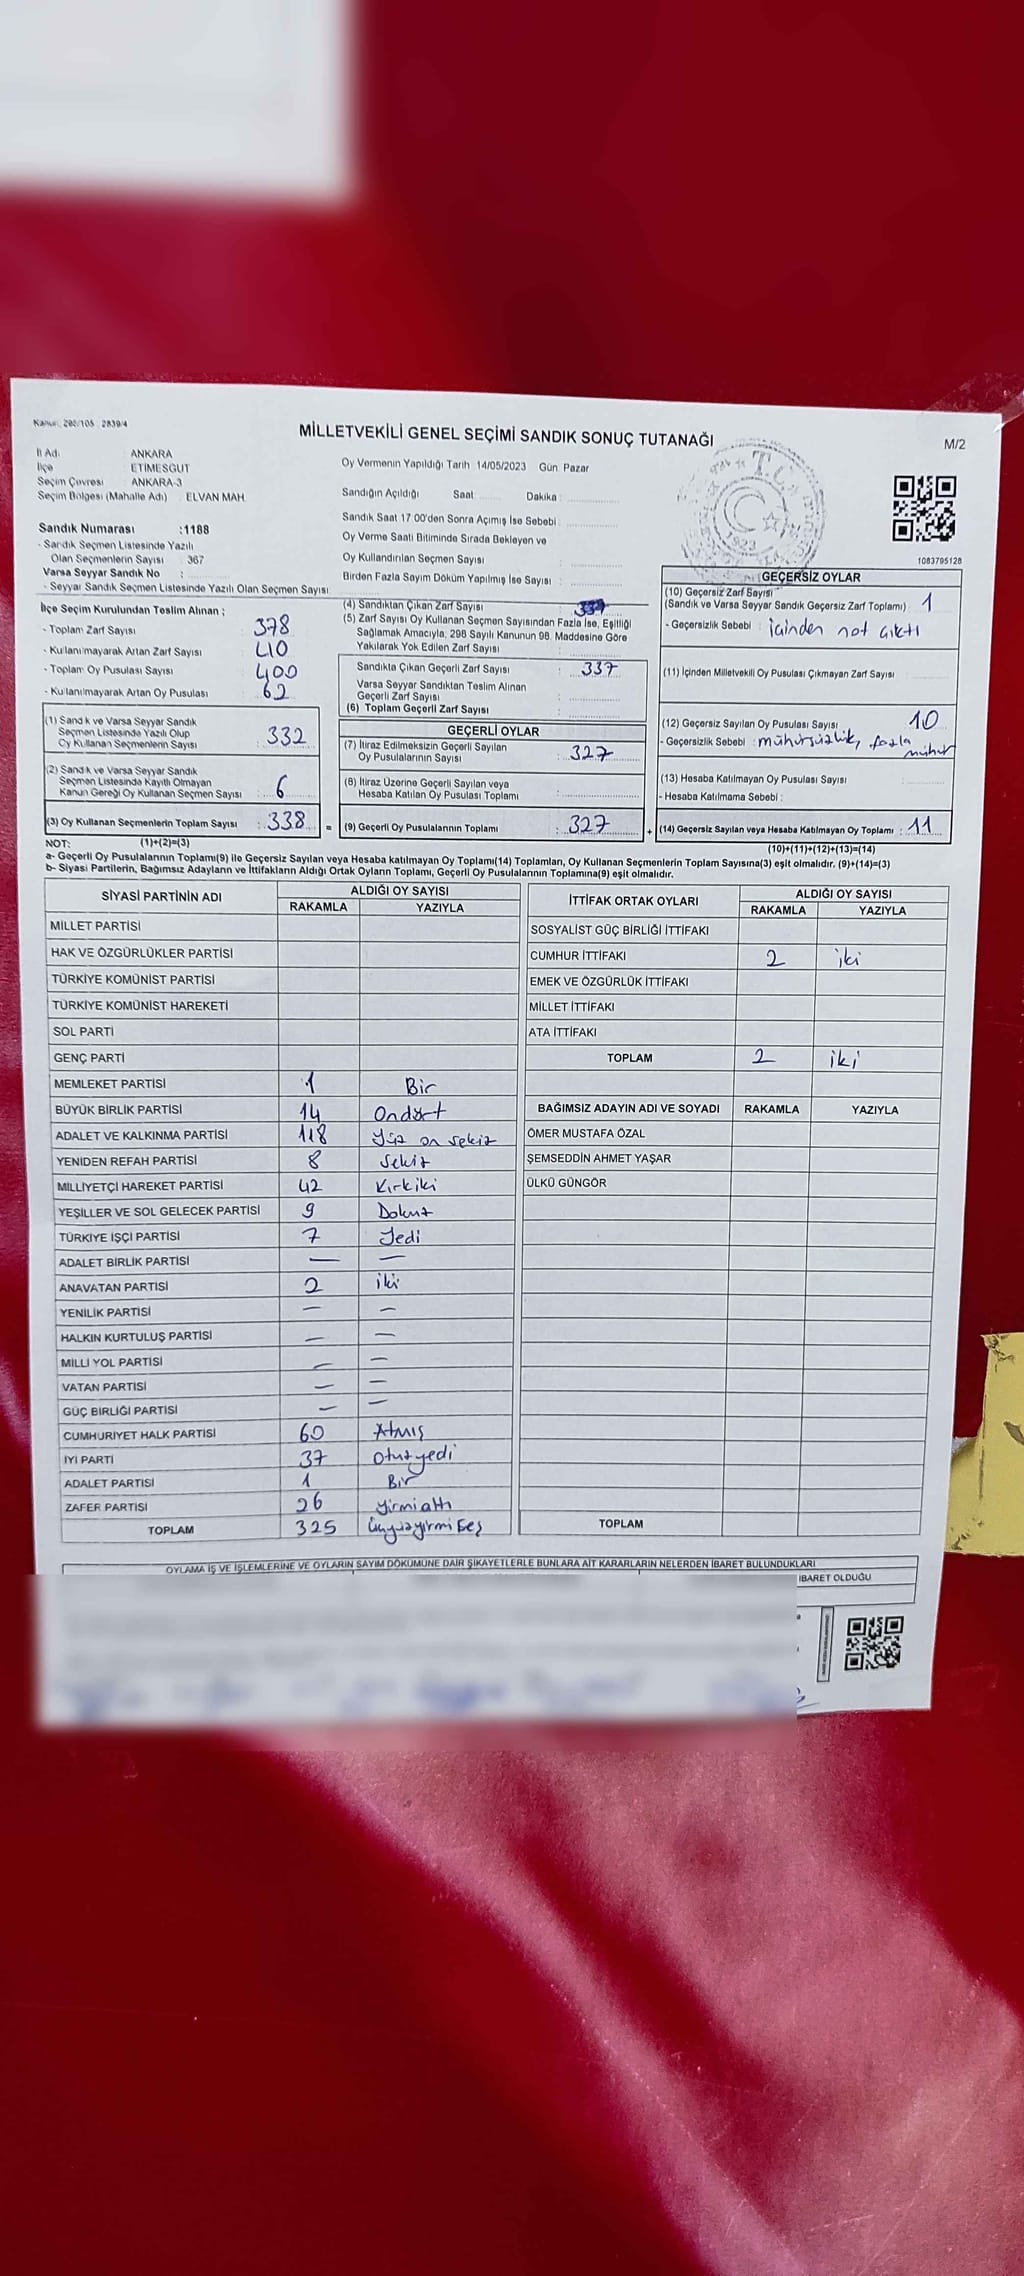 Kanun: 298/105 2839/4
MİLLETVEKİLİ GENEL SEÇİMİ SANDIK SONUÇ TUTANAĞI
M/2
İl Adı : ANKARA
İlçe : ETİMESGUT
Seçim Çevresi : ANKARA-3
Seçim Bölgesi (Mahalle Adı) : ELVAN MAH.
Sandık Numarası :1188
- Sandık Seçmen Listesinde Yazılı
Olan Seçmenlerin Sayısı : 367
Varsa Seyyar Sandık No :
- Seyyar Sandık Seçmen Listesinde Yazılı Olan Seçmen Sayısı
Oy Vermenin Yapıldığı Tarih 14/05/2023 Gün Pazar
Sandığın Açıldığı Saat Dakika :
Sandık Saat 17:00'den Sonra Açımış İse Sebebi
Oy Verme Saati Bitiminde Sırada Bekleyen ve
Oy Kullandırılan Seçmen Sayısı
Birden Fazla Sayım Döküm Yapılmış İse Sayısı
T.C.
1923
1083795128
İlçe Seçim Kurulundan Teslim Alınan ;
- Toplam Zarf Sayısı 378
- Kullanılmayarak Artan Zarf Sayısı 40
- Toplam Oy Pusulası Sayısı 400
- Kullanılmayarak Artan Oy Pusulası 62
(1) Sandık ve Varsa Seyyar Sandık
Seçmen Listesinde Yazılı Olup
Oy Kullanan Seçmenlerin Sayısı : 332
(2) Sandık ve Varsa Seyyar Sandık
Seçmen Listesinde Kayıtlı Olmayan
Kanun Gereği Oy Kullanan Seçmen Sayısı : 6
(3) Oy Kullanan Seçmenlerin Toplam Sayısı : 338 =
(4) Sandıktan Çıkan Zarf Sayısı 337
(5) Zarf Sayısı Oy Kullanan Seçmen Sayısından Fazla İse, Eşitliği
Sağlamak Amacıyla, 298 Sayılı Kanunun 98. Maddesine Göre
Yakılarak Yok Edilen Zarf Sayısı
Sandıkta Çıkan Geçerli Zarf Sayısı : 337
Varsa Seyyar Sandıktan Teslim Alınan
Geçerli Zarf Sayısı
(6) Toplam Geçerli Zarf Sayısı
GEÇERLİ OYLAR
(7) İtiraz Edilmeksizin Geçerli Sayılan
Oy Pusulalarının Sayısı : 327
(8) İtiraz Üzerine Geçerli Sayılan veya
Hesaba Katılan Oy Pusulası Toplamı
(9) Geçerli Oy Pusulalarının Toplamı : 327 +
GEÇERSİZ OYLAR
(10) Geçersiz Zarf Sayısı
(Sandık ve Varsa Seyyar Sandık Geçersiz Zarf Toplamı) : 1
- Geçersizlik Sebebi : içinden not çıktı
(11) İçinden Milletvekili Oy Pusulası Çıkmayan Zarf Sayısı
(12) Geçersiz Sayılan Oy Pusulası Sayısı 10
- Geçersizlik Sebebi : mühürsüzlük, fazla
mühür
(13) Hesaba Katılmayan Oy Pusulası Sayısı
- Hesaba Katılmama Sebebi :
(14) Geçersiz Sayılan veya Hesaba Katılmayan Oy Toplamı : 11
NOT: (1)+(2)=(3) (10)+(11)+(12)+(13)=(14)
a- Geçerli Oy Pusulalarının Toplamı(9) ile Geçersiz Sayılan veya Hesaba katılmayan Oy Toplamı(14) Toplamları, Oy Kullanan Seçmenlerin Toplam Sayısına(3) eşit olmalıdır. (9)+(14)=(3)
b- Siyasi Partilerin, Bağımsız Adayların ve İttifakların Aldığı Ortak Oyların Toplamı, Geçerli Oy Pusulalarının Toplamına(9) eşit olmalıdır.
SİYASİ PARTİNİN ADI ALDIĞI OY SAYISI
RAKAMLA YAZIYLA
MİLLET PARTİSİ
HAK VE ÖZGÜRLÜKLER PARTİSİ
TÜRKİYE KOMÜNİST PARTİSİ
TÜRKİYE KOMÜNİST HAREKETİ
SOL PARTİ
GENÇ PARTİ
MEMLEKET PARTİSİ 1 Bir
BÜYÜK BİRLİK PARTİSİ 14 Ondört
ADALET VE KALKINMA PARTİSİ 118 Yüz on sekiz
YENİDEN REFAH PARTİSİ 8 Sekiz
MİLLİYETÇİ HAREKET PARTİSİ 42 Kırkiki
YEŞİLLER VE SOL GELECEK PARTİSİ 9 Dokuz
TÜRKİYE İŞÇİ PARTİSİ 7 Yedi
ADALET BİRLİK PARTİSİ — —
ANAVATAN PARTİSİ 2 iki
YENİLİK PARTİSİ — —
HALKIN KURTULUŞ PARTİSİ — —
MİLLİ YOL PARTİSİ — —
VATAN PARTİSİ — —
GÜÇ BİRLİĞİ PARTİSİ — —
CUMHURİYET HALK PARTİSİ 60 Atmış
İYİ PARTİ 37 otuzyedi
ADALET PARTİSİ 1 Bir
ZAFER PARTİSİ 26 Yirmialtı
TOPLAM 325 Üçyüzyirmi beş
İTTİFAK ORTAK OYLARI ALDIĞI OY SAYISI
RAKAMLA YAZIYLA
SOSYALİST GÜÇ BİRLİĞİ İTTİFAKI
CUMHUR İTTİFAKI 2 iki
EMEK VE ÖZGÜRLÜK İTTİFAKI
MİLLET İTTİFAKI
ATA İTTİFAKI
TOPLAM 2 iki
BAĞIMSIZ ADAYIN ADI VE SOYADI RAKAMLA YAZIYLA
ÖMER MUSTAFA ÖZAL
ŞEMSEDDİN AHMET YAŞAR
ÜLKÜ GÜNGÖR
TOPLAM
OYLAMA İŞ VE İŞLEMLERİNE VE OYLARIN SAYIM DÖKÜMÜNE DAİR ŞİKAYETLERLE BUNLARA AİT KARARLARIN NELERDEN İBARET BULUNDUKLARI
İBARET OLDUĞU